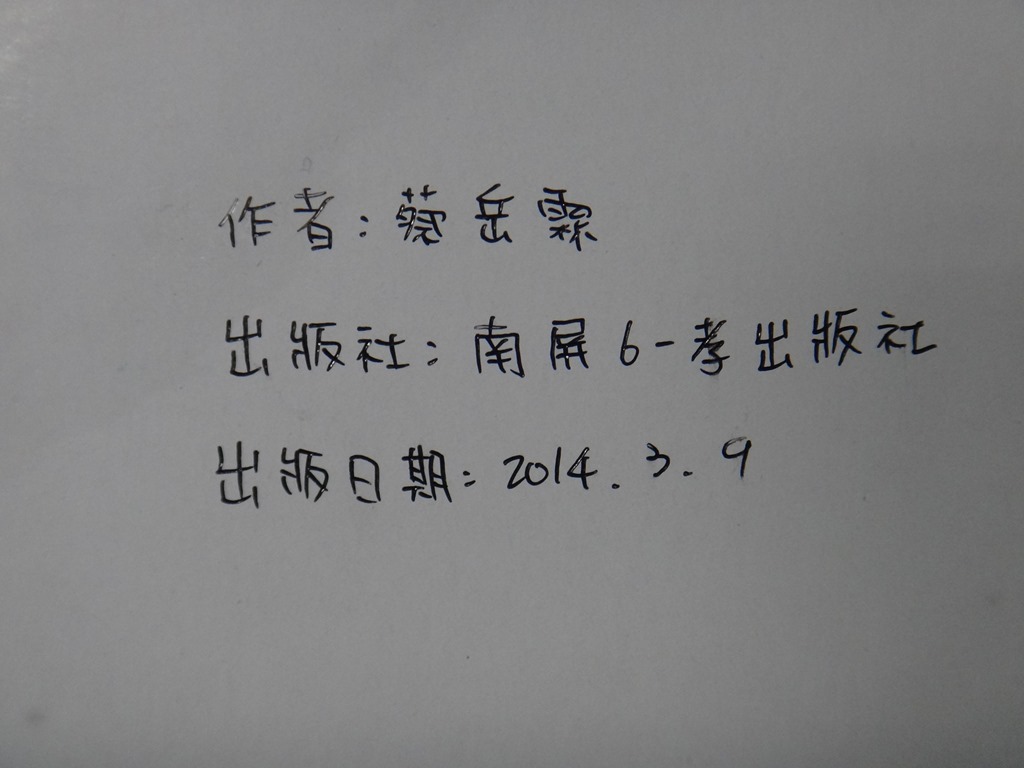 作者：蔡岳霖
出版社：南屏6-孝出版社
出版日期：2014.3.9